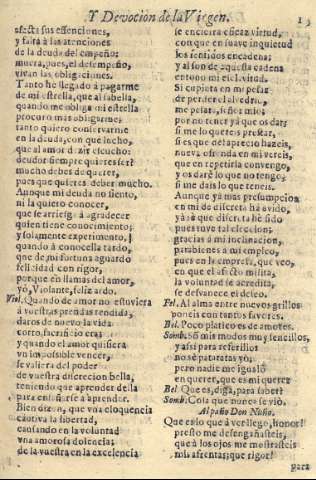 Y Devoción de la Virgen.
afecta sus essenciones,
y faita à las atenciones
de la deuda del empeño:
muera, pues, el desempeño,
vivan las obligaciones.
Tanto he llegado à pagarme
de mi estrella, que al sabella,
quando me obliga mi estrella
procuro mas obligarme:
tanto quiero conservarme
en la deuda, con que lucho,
que al amor di à escucho:
deudor siempre quiero ser?
mucho debes de querer,
pues que quieres deber mucho.
Aunque mi deuda no siento,
ni la quiero conocer,
que se arriesga à agradecer
quien tiene conocimiento;
y solamente experimento,
quando à conocella tardo,
que de mi fortuna aguardo
felicidad con rigor,
porque en llamas del amor,
yo, Violante, elizardo.
Viol. Quando de amor no estuviera
à vuestras prendas rendida,
daros de nuevo la vida
corto sacrificio era;
y quando el amor quisiera
vn impossible vencer,
se valiera del poder
de vuestra discrecion bella,
teniendo que aprender della
para enseñarse à aprender.
Bien dizen, que vna eloquencia
cautiva la libertad,
causando en la voluntad
vna amorosa dolencia;
de la vuestra en la excelencia
se encierra eficaz virtud,
con que en suave inquietud
los sentidos encadena;
y al son de aquesta cadena
entono mi esclavitud.
Si cupiera en mi pesar
de perder el alvedrio,
me pesàra, señor mio,
por no tener ya que os dar;
si me lo quereis prestar,
si es que no aprecio hazeis,
nueva ofrenda en mi vereis,
que en repetirla convengo,
y os darè lo que no tengo,
si me dais lo que teneis.
Aunque yà mas presumpcion
en mi de discreta ha avido,
yà si que discreta he sido
pues tuve tal eleccion;
gracias à mi inclinacion,
parabienes à mi empleo,
pues en la empressa, que veo,
en que el afecto milita,
la voluntad se acredita,
se desvanece el deseo.
Fel. Al alma entre nuevos grillos
poneis con tantos favores.
Bel. Poco platico es de amores.
Somb. Sõ mis modos muy sencillos,
y assi para referillos
no se pataratas yo;
pero nadie me igualò
en querer, que es mi querer
Bel. Que es, diga, para saber?
Somb. Cosa que nunca se viò.
Al paño Don Nuño.
Que es lo que à ver llego, honor!
presto me desengañasteis,
que à los ojos me mostrasteis
mis afrentas; que rigor!
para